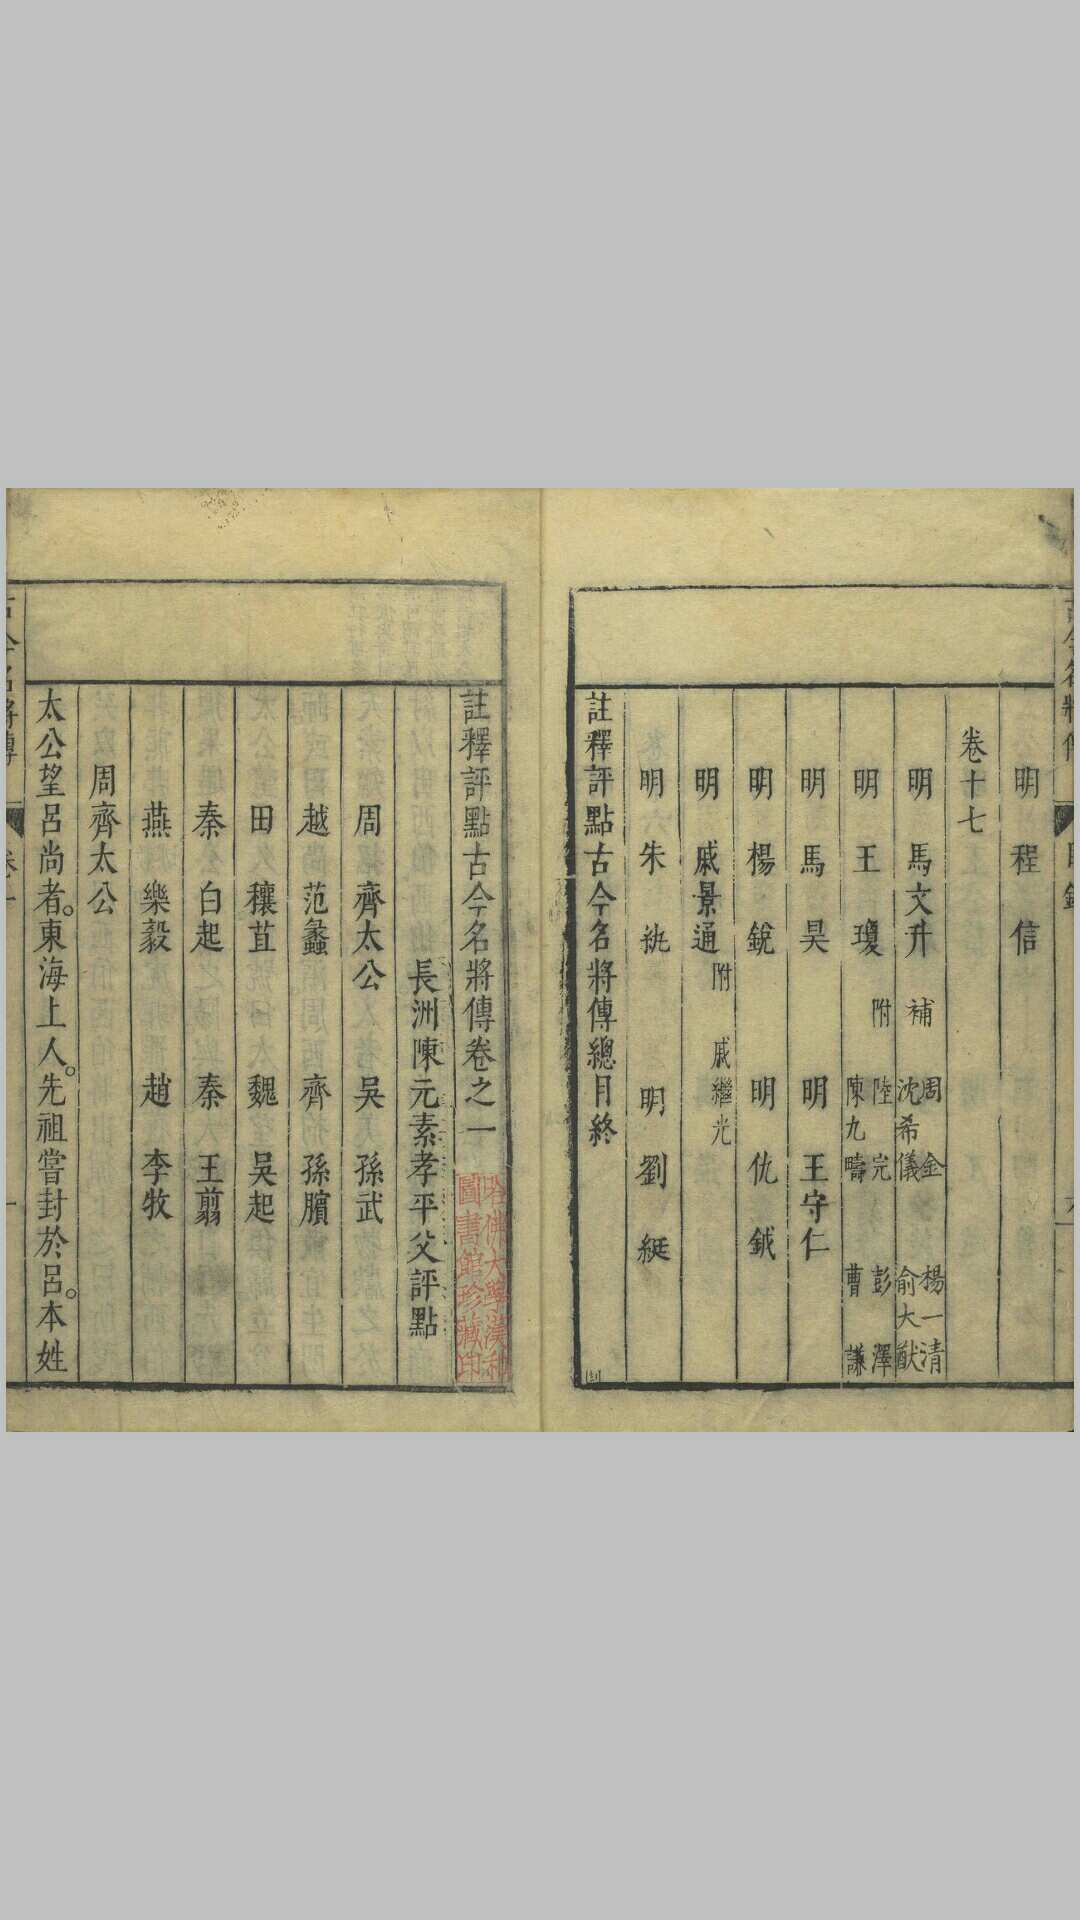 明 程信
卷十七
明 馬文升 補 周金 楊一清 沈希儀 俞大猷
明 王瓊 附 陸完 彭澤 陳九疇 曹謙
明 馬昊 明 王守仁
明 楊銳 明 仇鉞
明 戚景通 附 戚繼光
明 朱紈 明 劉綎
註釋評點古今名將傳總目終
註釋評點古今名將傳卷之一
長洲陳元素孝平父評點
周 齊太公 吳 孫武
越 范蠡 齊 孫臏
田穰苴 魏 吳起
秦 白起 秦 王翦
燕 樂毅 趙 李牧
周齊太公
太公望呂尚者。東海上人。先祖嘗封於呂。本姓
古今名將傳
卷一
一
哈佛大學漢和圖書館珍藏印